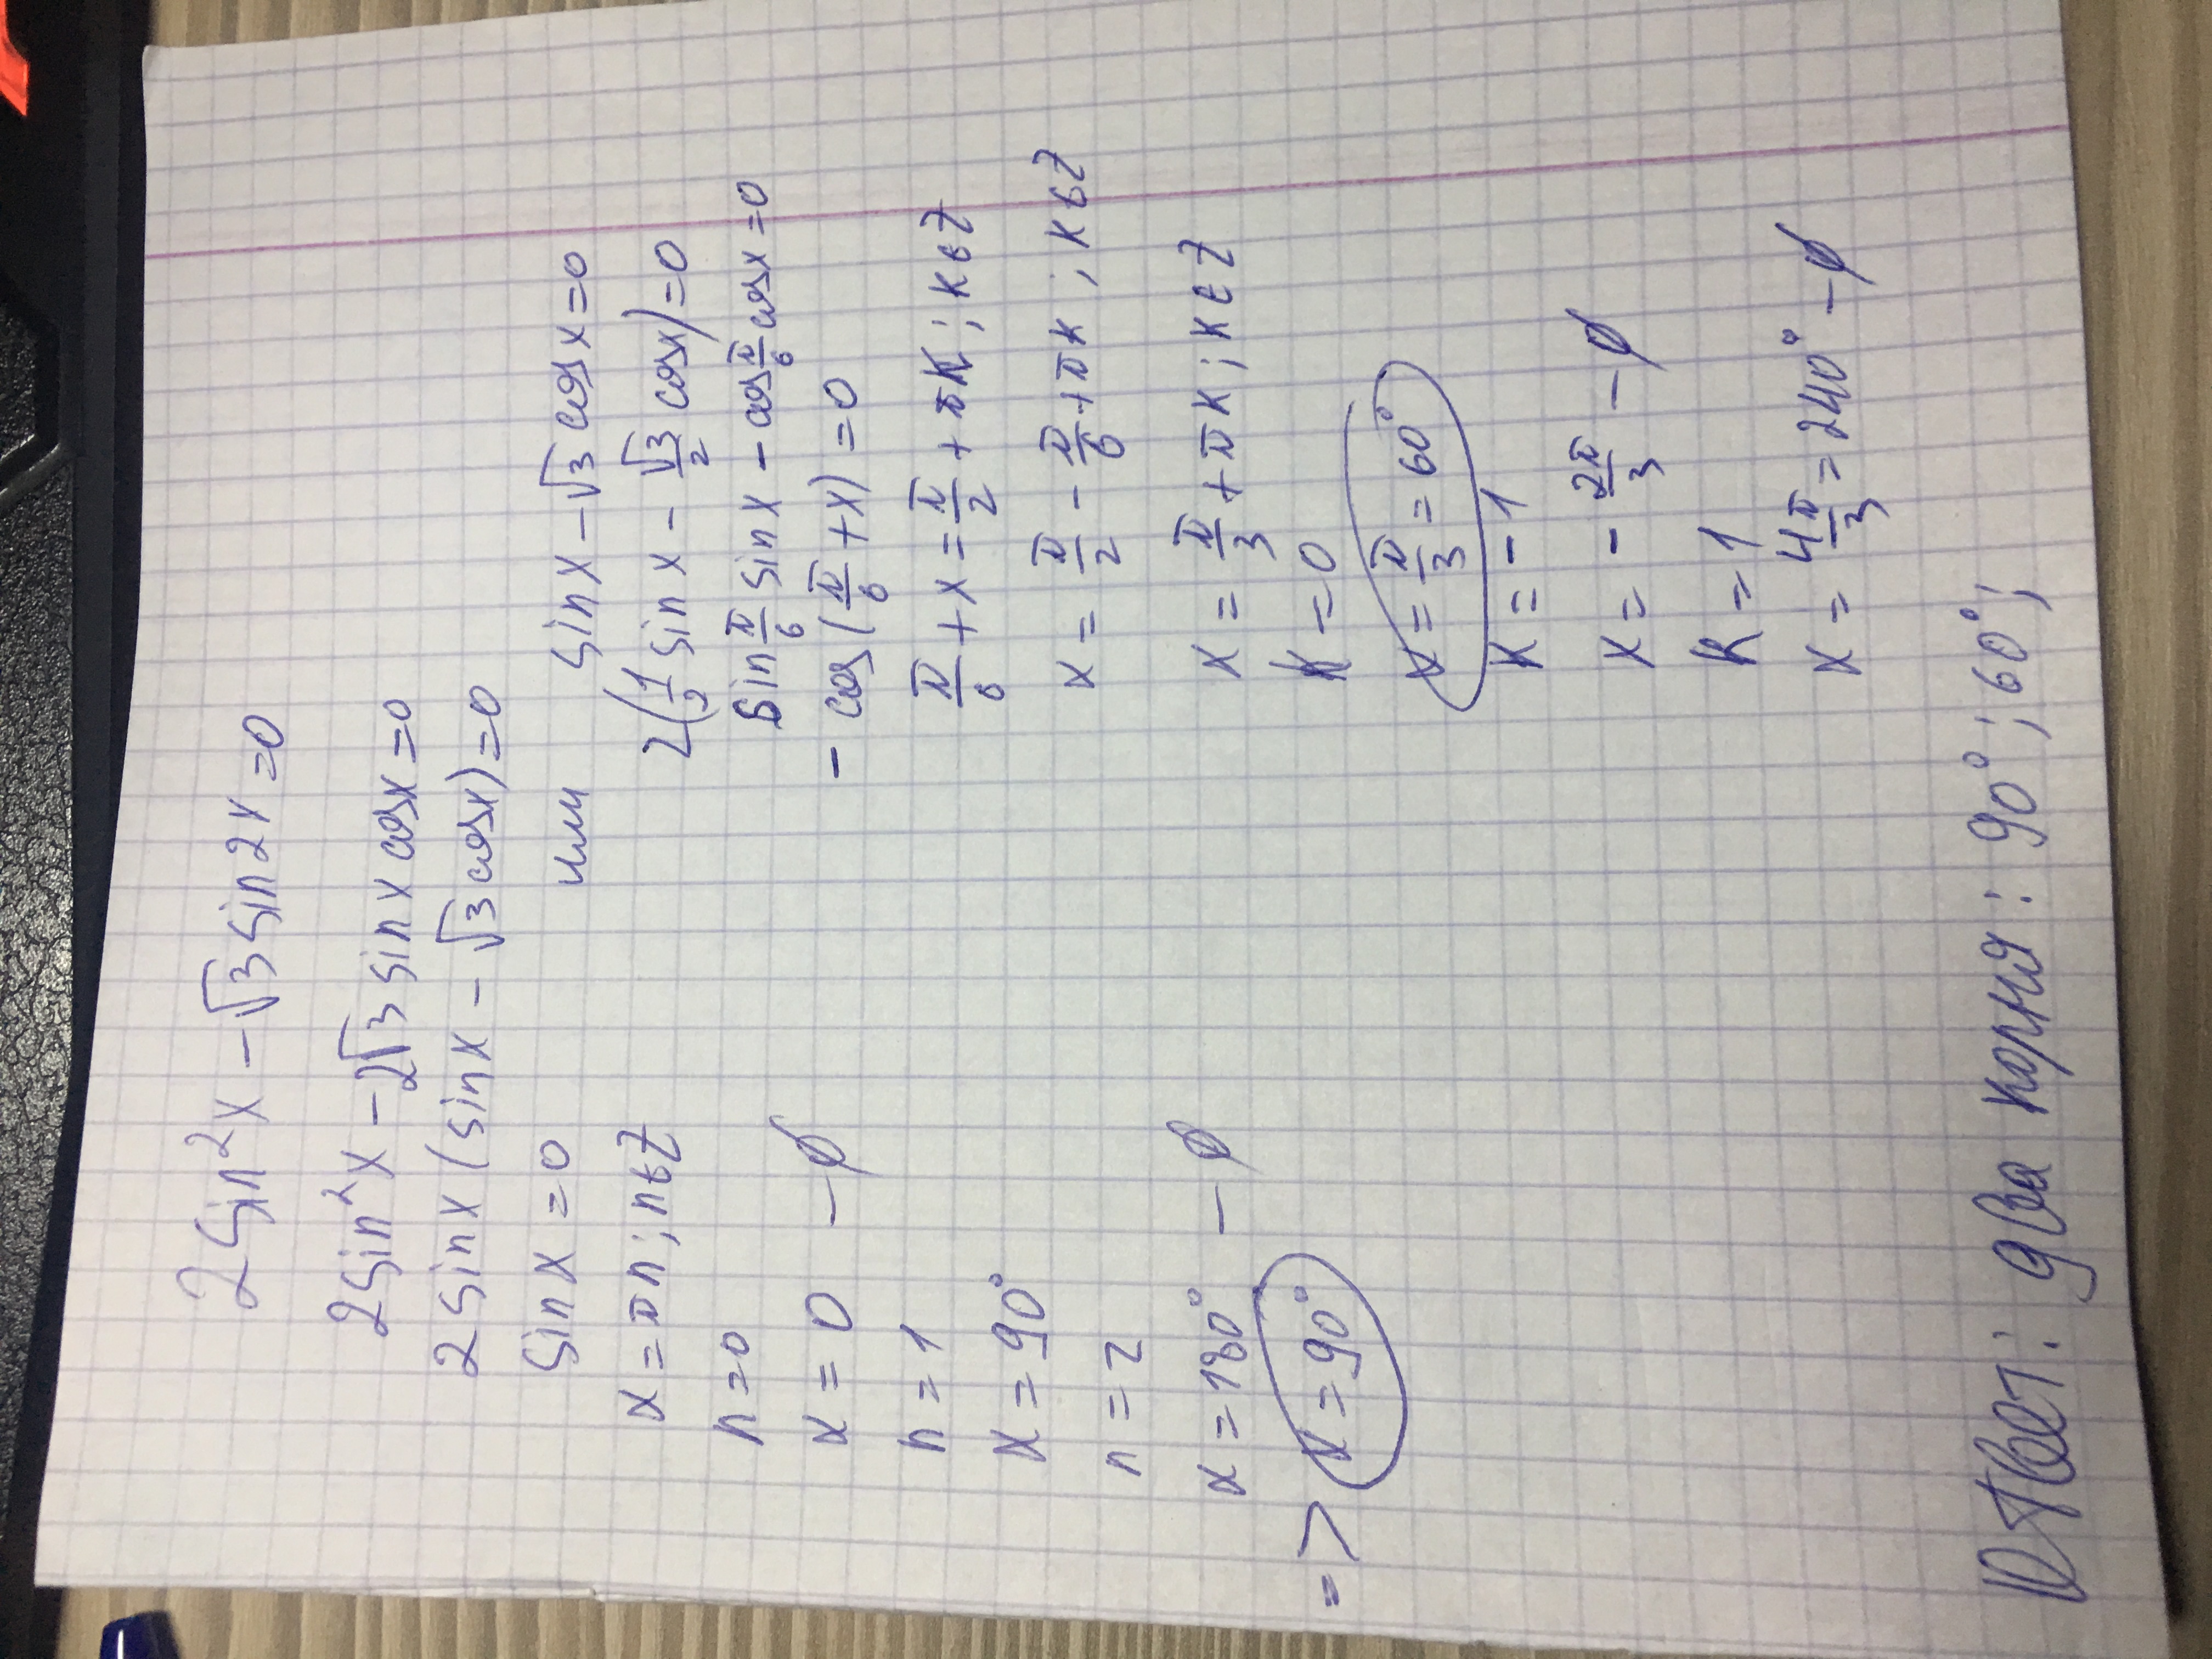 2sin²x-√3sin2x=0
2sin²x-2√3sinxcosx=0
2sinx(sinx-√3cosx)=0
sinx=0 или sinx-√3cosx=0
x=πn;n∈Z
n=0
x=0 -∅
n=1
x=90°
n=2
x=180° -∅
=> x=90°
2(1/2sinx-√3/2cosx)=0
sinπ/6sinx-cosπ/6cosx=0
-cos(π/6+x)=0
π/6+x=π/2+πk;k∈Z
x=π/2-π/6+πk;k∈Z
x=π/3+πk;k∈Z
k=0
x=π/3=60°
k=-1
x=-2π/3 -∅
k=1
x=4π/3=240° -∅
Ответ: два корня: 90°; 60°;